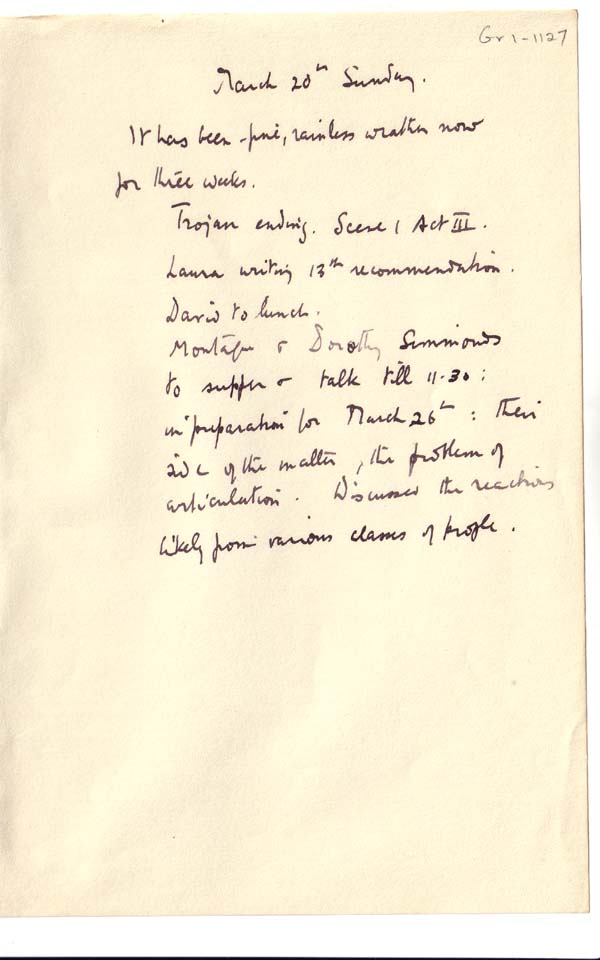 Gr 1-1127
March 20th Sunday.
It has been fine, rainless weather now
for three weeks.
Trojan ending. Scene 1 Act III.
Laura writing 13th recommendation.
David to lunch.
Montague & Dorothy Simmonds
to supper & talk till 11-30:
in preparation for March 26th: their
side of the matter, the problem of
articulation. Discussed the reactions
likely from various classes of people.